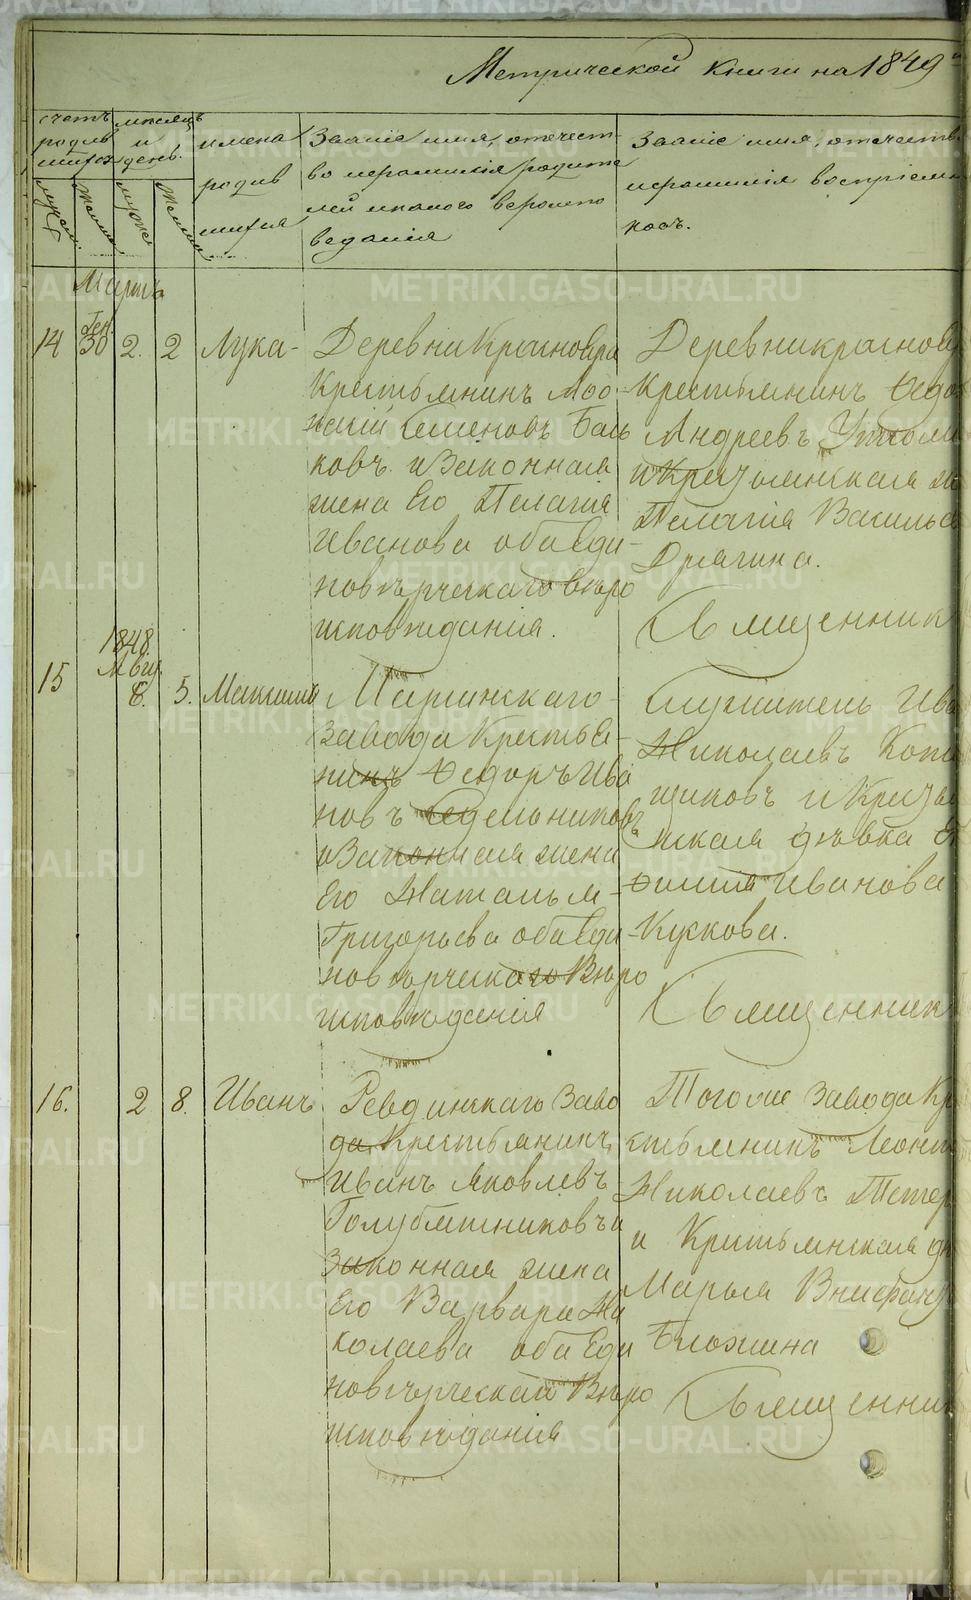 Метрической Книги на 1849
счетъ родив шихся
мужес.
женс.
месяцъ и день.
мужес
женс.
имена
родив
шихся
Званіе имя, отечест-
во и фамилія родите
лей и какого вероиспо
ведания
Званіе имя, отчеств
и фамилія воспріем
ковъ.
Мартъ
14
Ген.
30
2.
2
Лука-
Деревни Краснояра
Крестьянинъ
Семеновъ
ковъ и Законная
жена Его Пелагия
Иванова оба Еди-
новѣрческаго вѣро
исповѣдания.
Деревни краснояр
Крестьянинъ Ѳедо
Андреевъ
и Крестьянская
Пелагия Василье
Дрягина.
Священник
15
1848
8.
5.
Максимъ
Заво да Крестья-
нинъ Ѳедоръ Ива
новъ Седельников
и Законная жена
Его Наталья
Григорьева оба Еди-
новѣрческаго Вѣро
исповѣдания
Служитель Ива
Николаевъ Коты
щиковъ и Крестья
нская дѣвка
Иванова
Кускова.
Священник
16.
2
8.
Иванъ
Ревдинскаго Заво
да Крестьянинъ
Иванъ Яковлевъ
Голубятниковъ и
Законная жена
Его Варвара Ни
колаева оба Еди
новѣрческаго Вѣро
исповѣдания
Тогоже Завода Кр
стьянинъ Леонт
Николаевъ Петер
и Крестьянская
Марья
Блохина
Священник
METRIKI.GASO-URAL.RU